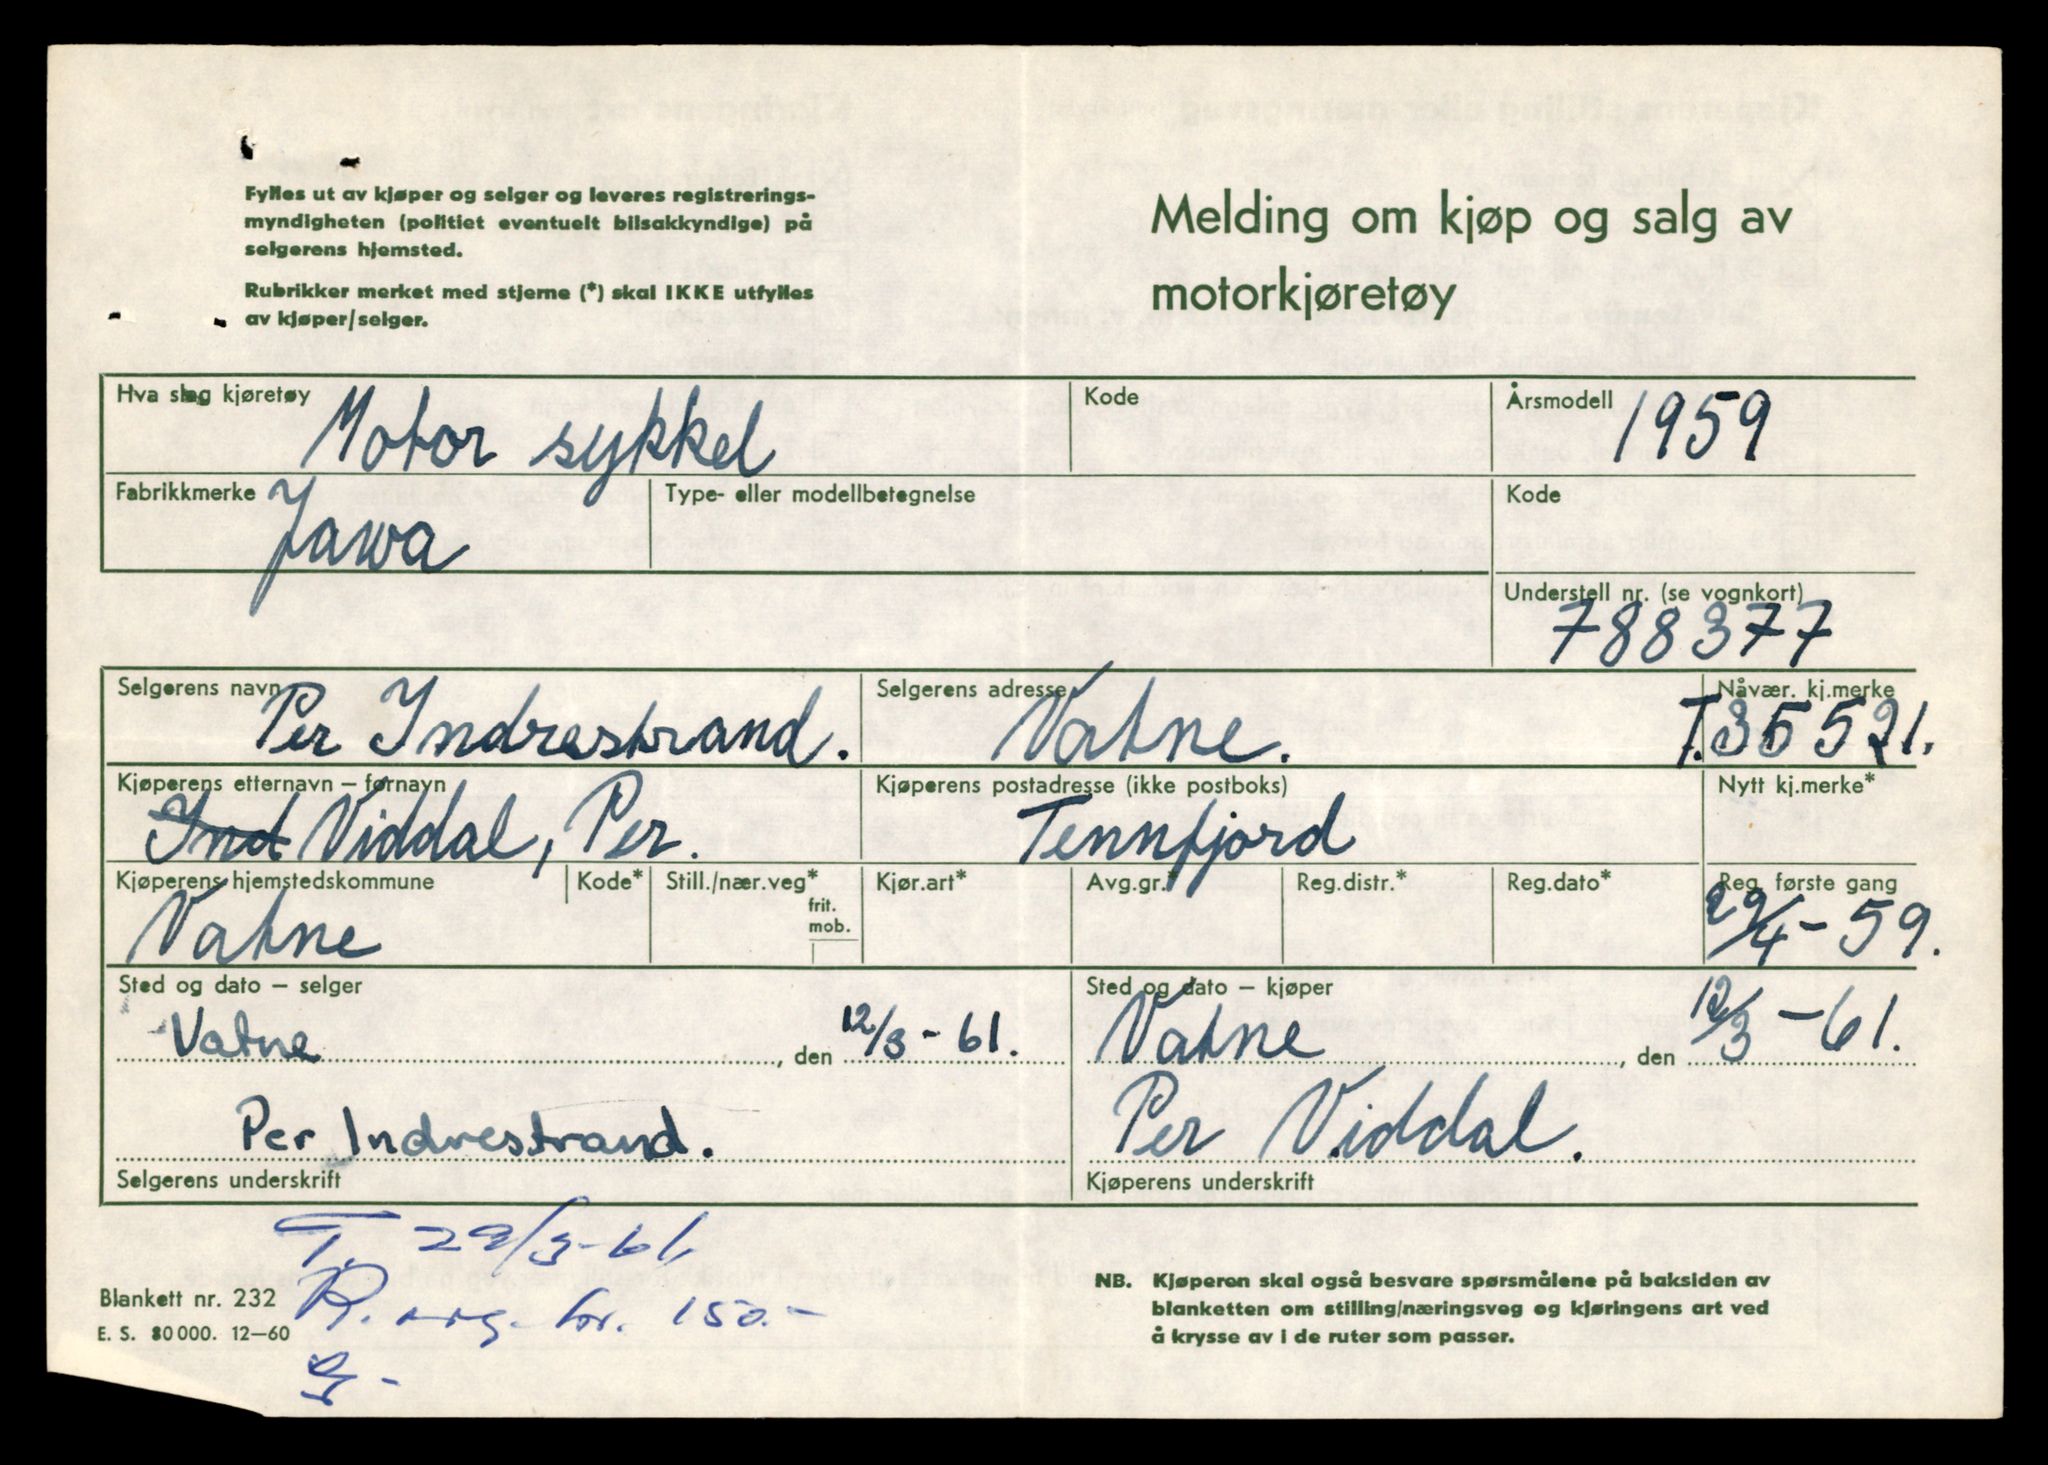 Fylles ut av kjøper og selger og leveres registrerings-
myndigheten (politiet eventuelt bilsakkyndige) på
selgerens hjemsted.
Rubrikker merket med stjerne (*) skal IKKE utfylles
av kjøper/selger.
Melding om kjøp og salg av
motorkjøretøy
Hva slag kjøretøy
Motor sykkel
Kode
Årsmodell
1959
Fabrikkmerke
Jawa
Type- eller modellbetegnelse
Kode
Understell nr. (se vognkort)
788377
Selgerens navn
Per Indrestrand.
Selgerens adresse
Vatne.
Nåvær. kj.merke
T.35521.
Kjøperens etternavn – fornavn
Ind Viddal, Per.
Kjøperens postadresse (ikke postboks)
Tennfjord
Nytt kj.merke*
Kjøperens hjemstedskommune
Vatne
Kode*
Still./nær.veg*
frit.
mob.
Kjør.art*
Avg.gr.*
Reg.distr.*
Reg.dato*
Reg. første gang
29/4-59.
Sted og dato – selger
Vatne, den 12/3-61.
Sted og dato – kjøper
Vatne, den 12/3-61.
Per Indrestrand.
Selgerens underskrift
Per Viddal.
Kjøperens underskrift
T. 29/3-61.
R. org. kr. 150.-
Blankett nr. 232
E. S. 80000. 12–60
NB. Kjøperen skal også besvare spørsmålene på baksiden av
blanketten om stilling/næringsveg og kjøringens art ved
å krysse av i de ruter som passer.